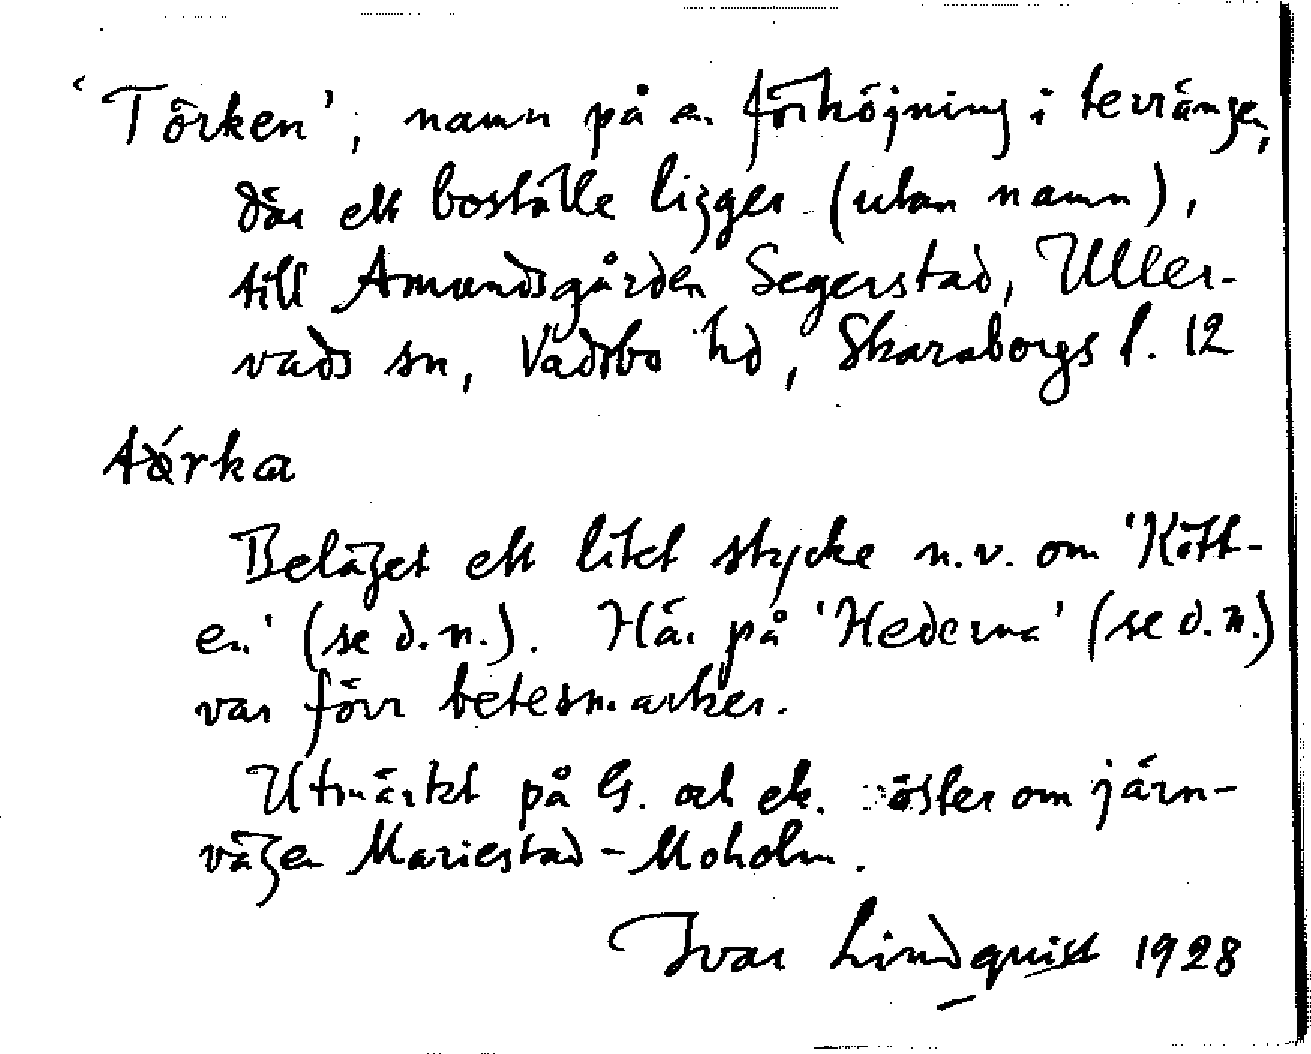 'Törken', namn på en förhöjning i terrängen,
där ett boställe ligger (utan namn),
till Amundsgården Segerstad, Uller-
vads sn, Vadsbo hd, Skaraborgs l. 12
Beläget ett litet stycke n.v. om 'Kött-
en' (se d.n.). Här på 'Hederna' (se d.n.)
var förr betesmarker.
Utmärkt på G. och ek. öster om järn-
vägen Mariestad-Moholm.
Ivar Lindquist 1928